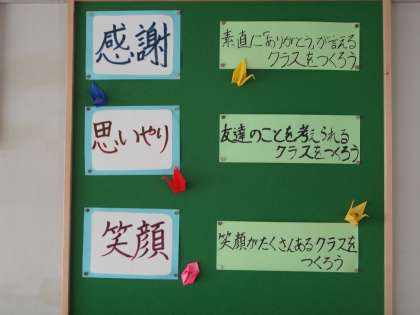 感謝
素直に「ありがとう」が言える
クラスをつくろう
思いやり
友達のことを考えられる
クラスをつくろう
笑顔
笑顔がたくさんあるクラスを
つくろう